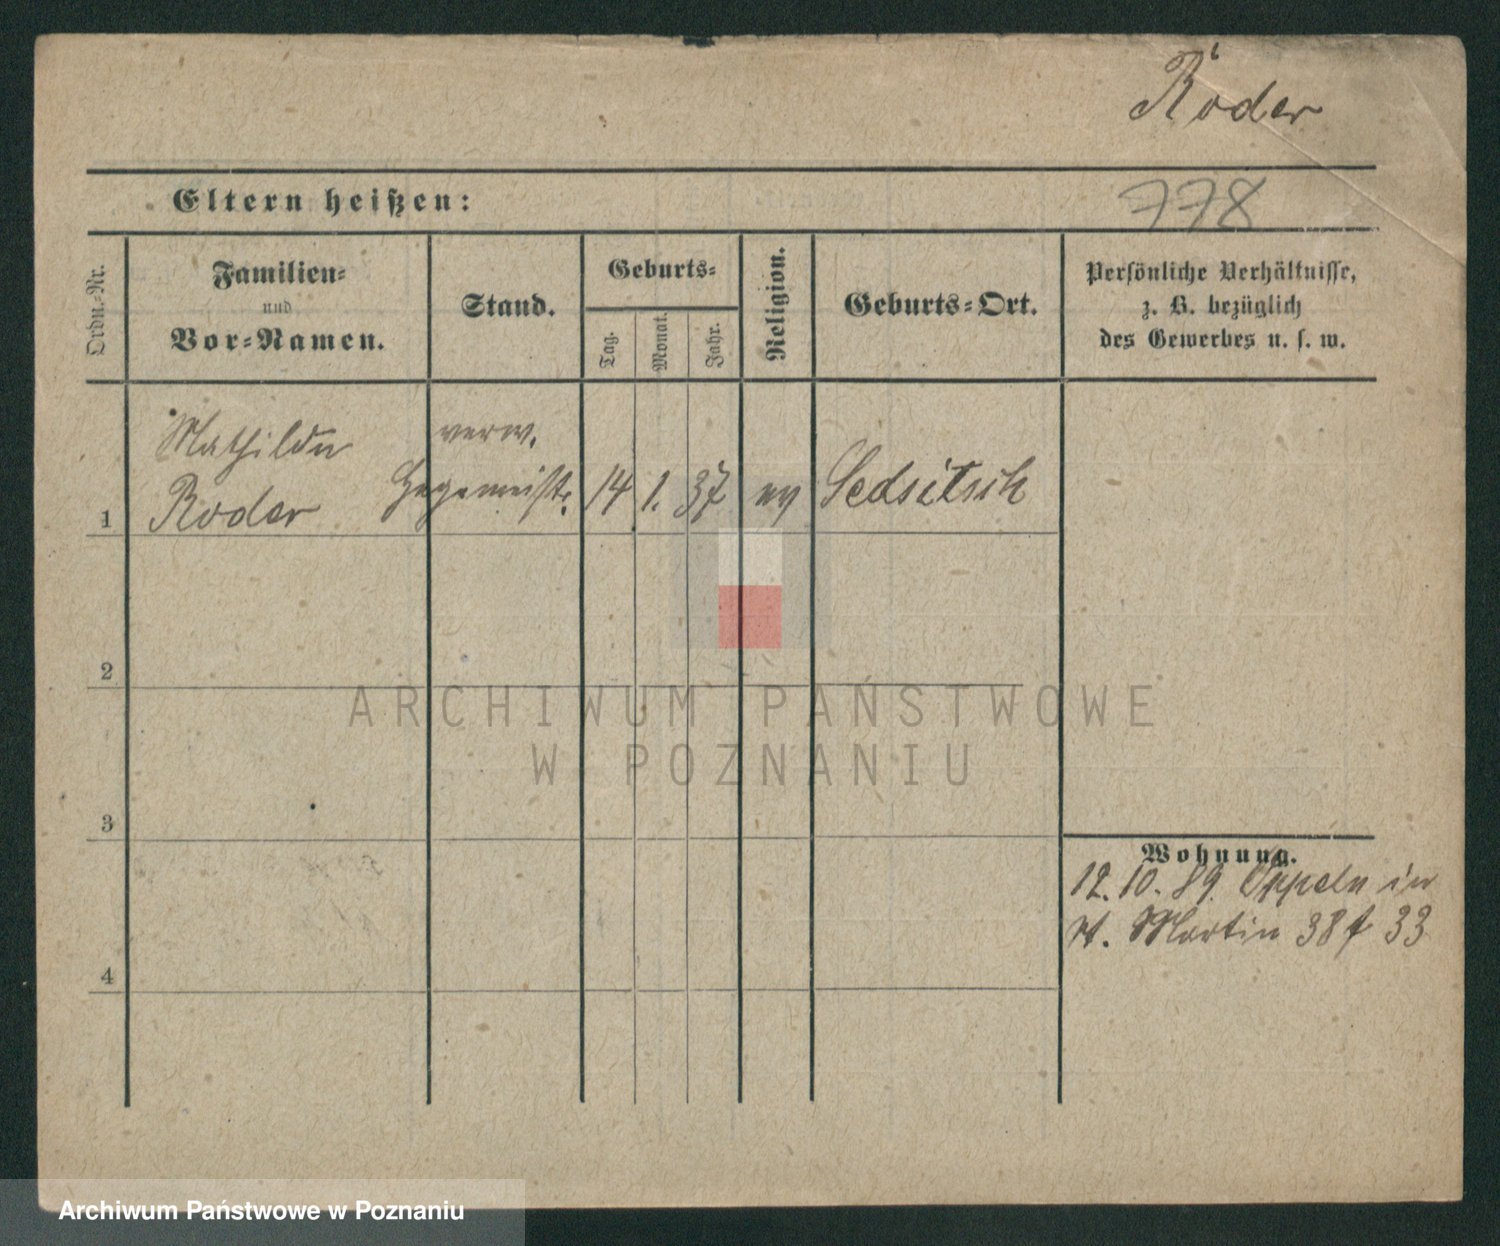 Roder
Eltern heißen:
778
Ordn.-Nr.
Familien-
und
Vor-Namen.
Stand.
Geburts-
Tag.
Monat.
Jahr.
Religion.
Geburts-Ort.
Persönliche Verhältnisse,
z. B. bezüglich
des Gewerbes u. s. w.
Mathilde
Roder
verw.
Hegemeistr.
1
14
1.
37
ev
Sedsitsch
2
3
4
Wohnung.
12. 10. 89. Oppeln in
St. Martin 38 f 33
ARCHIWUM PAŃSTWOWE
W POZNANIU
Archiwum Państwowe w Poznaniu